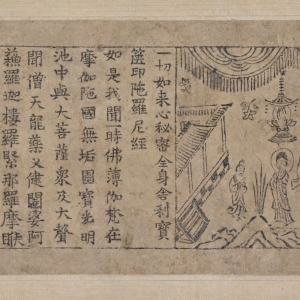 一切如来心祕密全身舍利寶
篋印陁羅尼經
如是我聞時佛薄伽梵在
摩伽陁國無垢園寶光明
池中與大菩薩衆及大聲
聞僧天龍藥叉健闥婆阿
蘓羅迦樓羅緊那羅摩睺